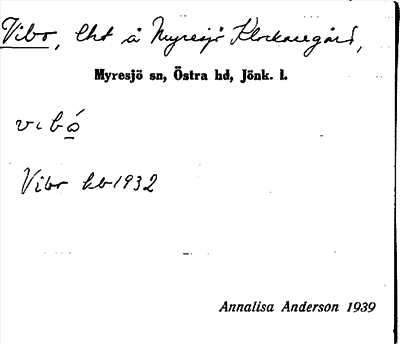 Vibo, lht å Myresjö Klockaregård,
Myresjö sn, Östra hd, Jönk. l.
vibó
Vibo kb 1932
Annalisa Anderson 1939